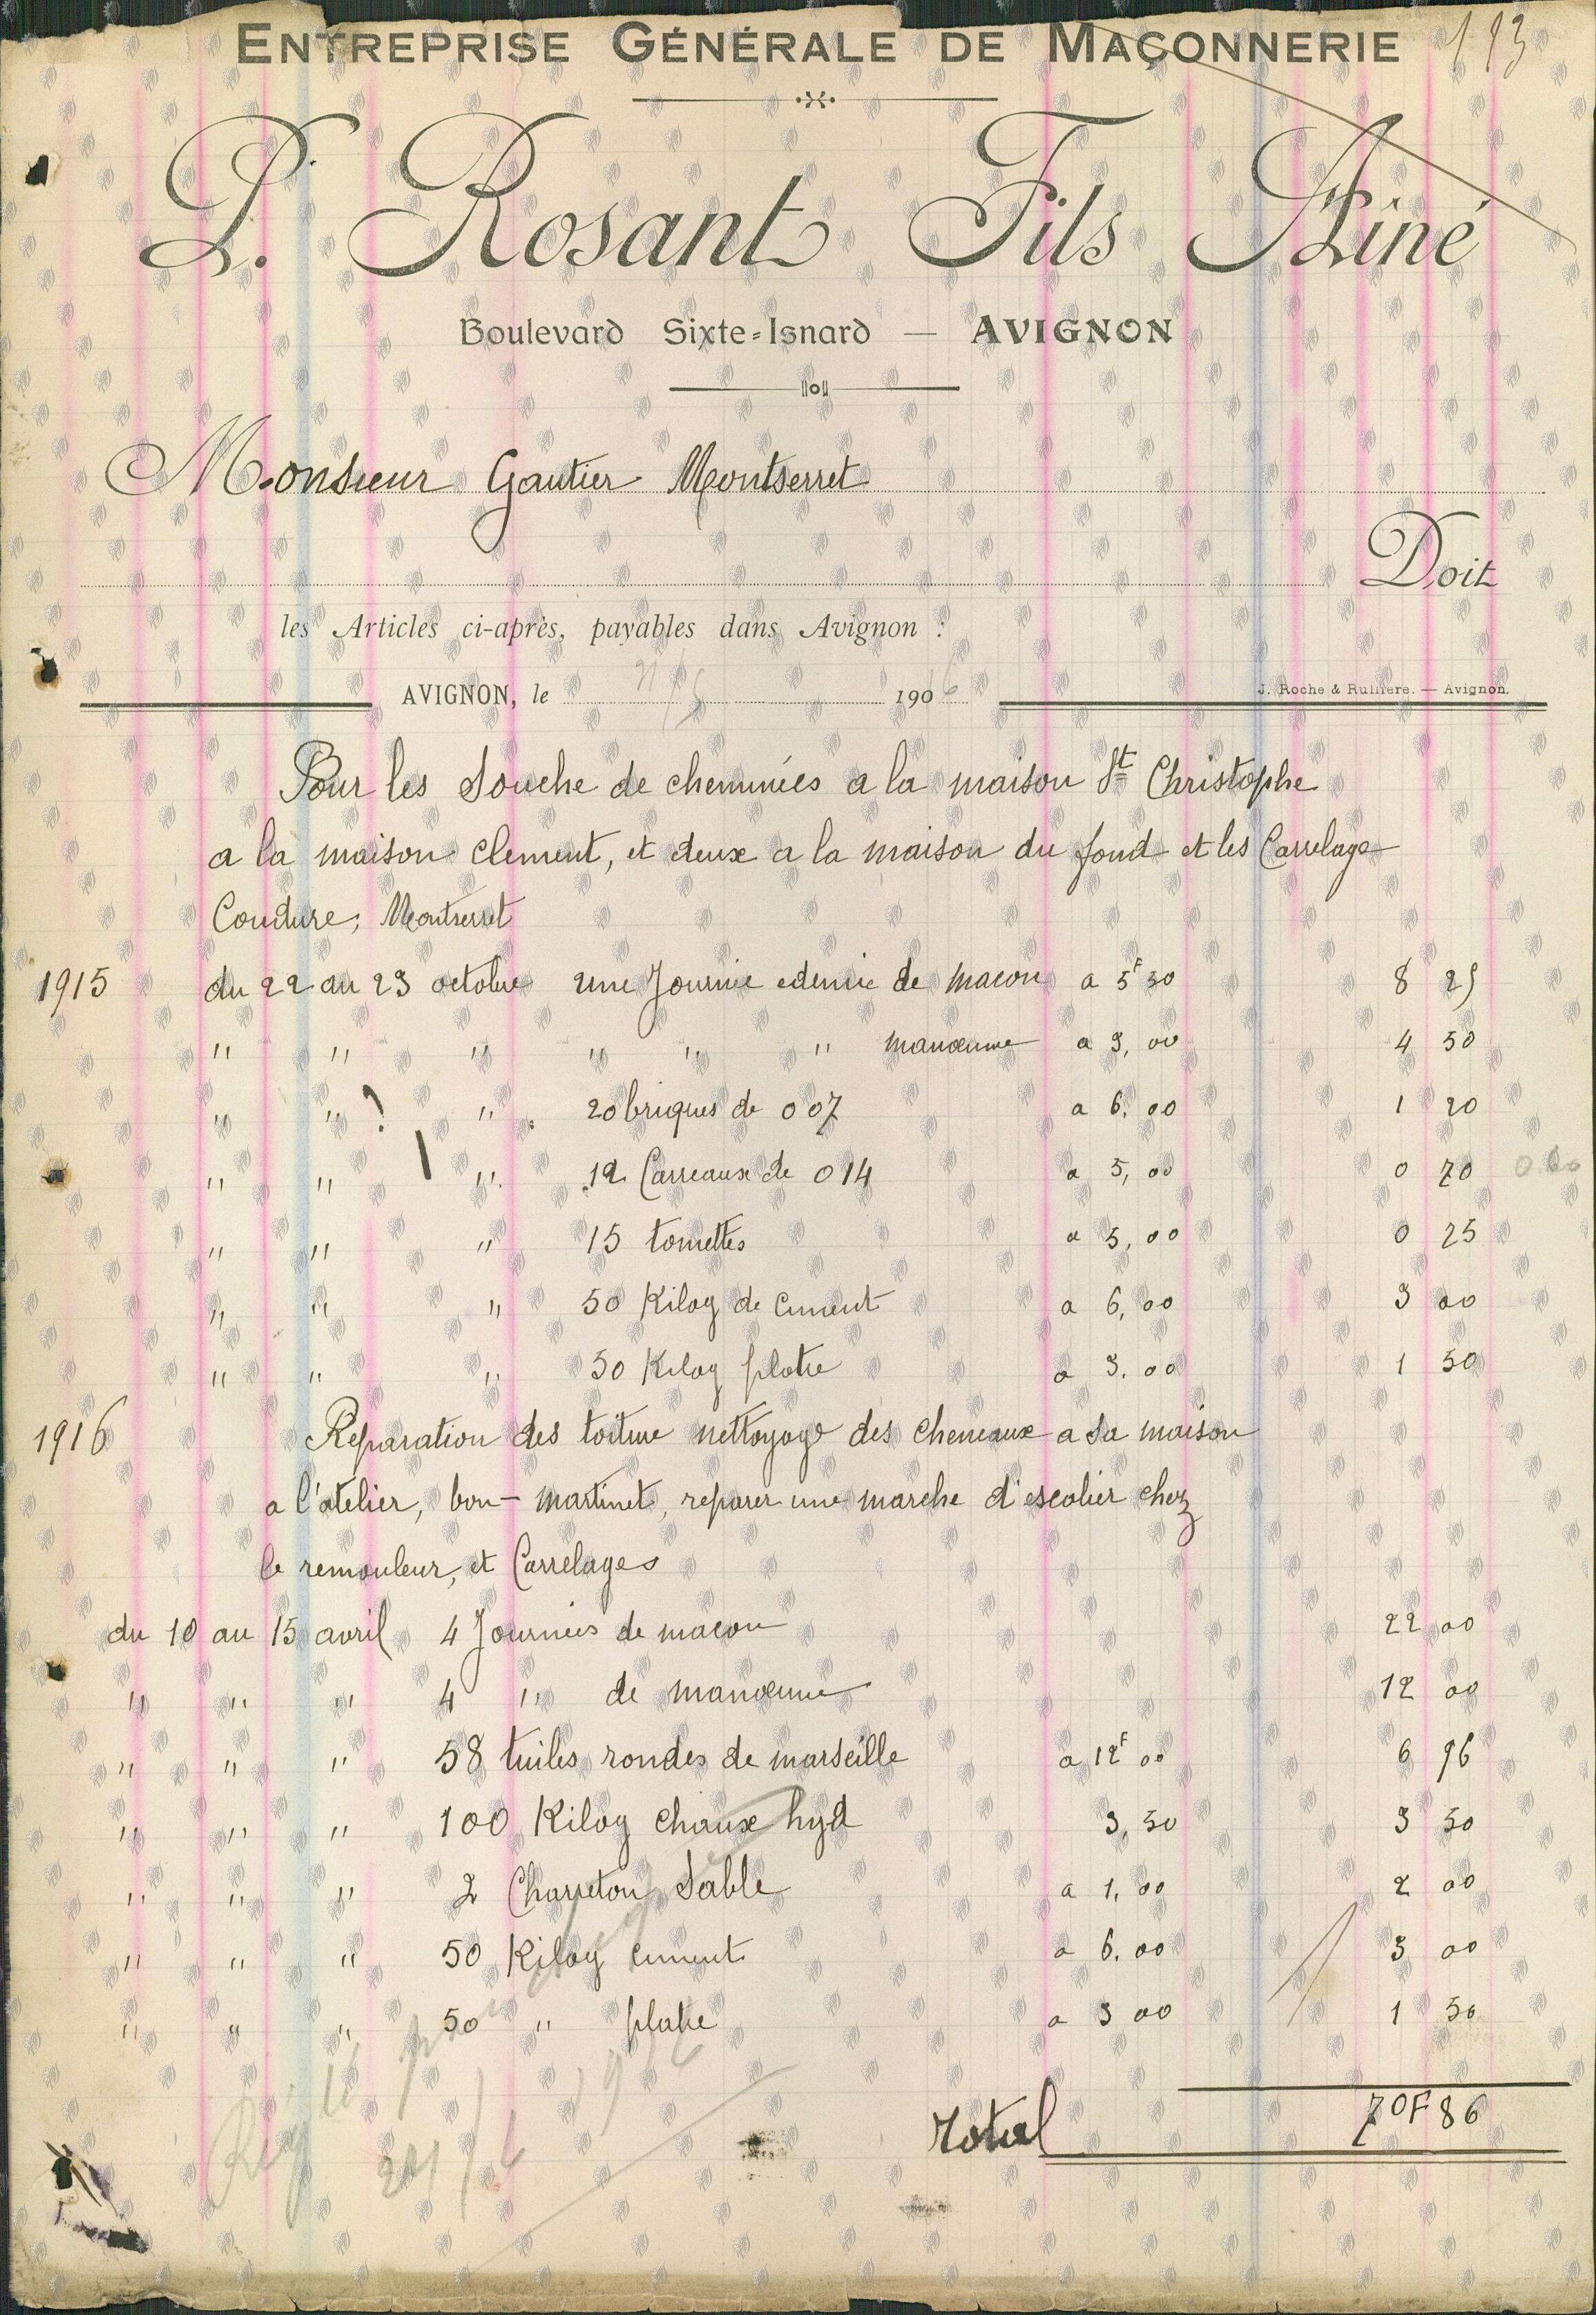 ENTREPRISE GÉNÉRALE DE MAÇONNERIE
193
P. Rosant Fils Aîné
Boulevard Sixte-Isnard — AVIGNON
Monsieur Gautier Montserret
Doit
les Articles ci-après, payables dans Avignon :
AVIGNON, le 1906
J. Roche & Rullière. — Avignon.
Pour les Souche de cheminées a la maison St Christophe
a la maison clement, et deux a la maison du fond et les Carrelage
Coudure, Montserret
1915 du 22 au 23 octobre une Journie edemie de macon a 5F50 8 25
" " " " " " manœuvre a 3,00 4 50
" " " 20 briques de 0 07 a 6,00 1 20
" " " 12 Carreaux de 0 14 a 5,00 0 70 0.60
" " " 15 tomettes a 5,00 0 25
" " " 50 Kilog de ciment a 6,00 3 00
" " " 50 Kilog platre a 3.00 1 50
1916 Reparation des toiture nettoyage des cheneaux a sa maison
a l'atelier, bon-martinet, reparer une marche d'escalier chez
le remouleur, et Carrelages
du 10 au 15 avril 4 Journies de macon 22 00
" " " 4 " de manœuvre 12 00
" " " 58 tuiles rondes de marseille a 12F00 6 96
" " " 100 Kilog chaux hyd 3,50 3 50
" " " 2 Charreton Sable a 1,00 2 00
" " " 50 Kilog ciment a 6.00 3 00
" " " 50 " platre a 3 00 1 50
Total 70F86